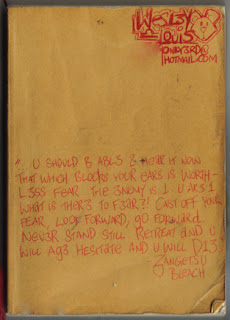 W3SL3Y
LOUIS
@HOTMAIL.COM
" U SHOULD B ABL3 2 H3AR IT NOW
THAT WHICH BLOCKS YOUR EARS IS WORTH-
L3SS FEAR THE 3N3MY IS 1 U AR3 1
WHAT IS THER3 TO F3AR?! CAST OFF YOUR
FEAR LOOK FORWARD, GO FORWARD
NEV3R STAND STILL RETREAT AND U
WILL AG3 HESITATE AND U WILL DI3
ZANGETSU
BLEACH